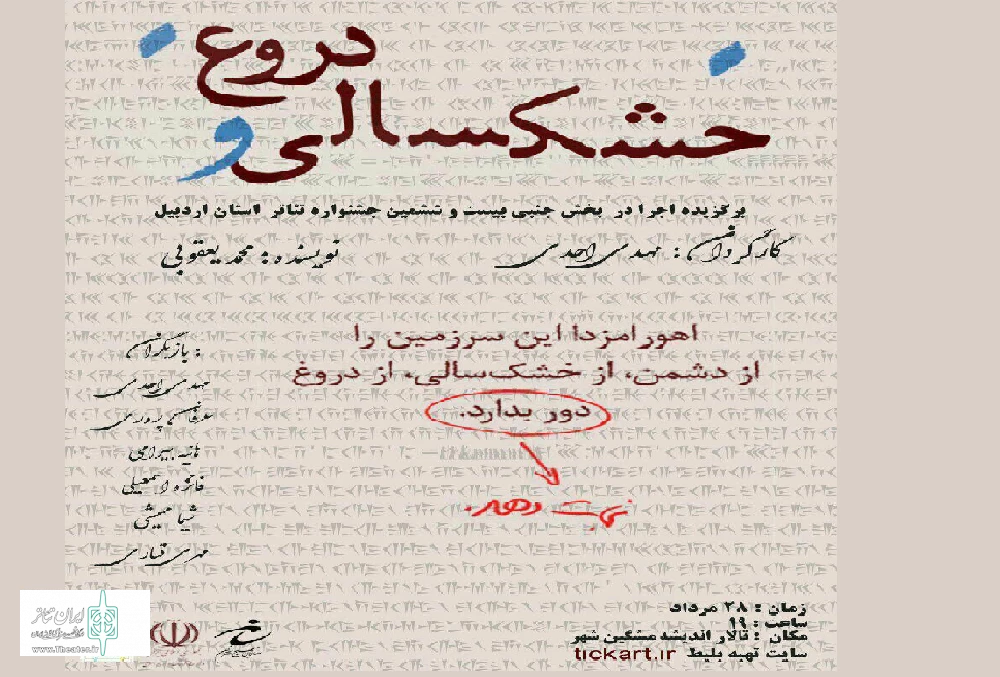 خشکسالی و دروغ
برگزیده اجرا در بخش جنبی بیست و ششمین جشنواره تئاتر استان اردبیل
کارگردان : مهدی احدی
نویسنده : محمد یعقوبی
اهورامزدا این سرزمین را
از دشمن، از خشک‌سالی، از دروغ
دور بدارد.
نجات دهد.
بازیگران :
مهدی احدی
هانیه بیرامی
فائزه اسمعیلی
زمان : ۲۸ مرداد
ساعت : ۱۹
مکان : تالار اندیشه مشگین شهر
سایت تهیه بلیط tickart.ir
ایران تئاتر
www.Theater.ir